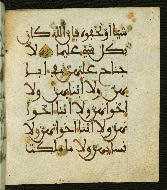 شيا او تخفوه فان الله كان
بكل شي عليما لا
جناح عليهن في ابا
يهن ولا ابنايهن ولا
اخوانهن ولا ابنا اخوا
نهن ولا ابنا اخواتهن ولا
نسايهن ولا ما ملكت